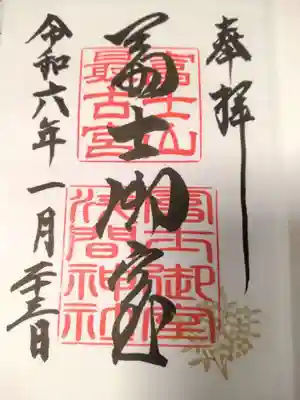 奉拝
富士山
最古宮
富士御室
富士御室
浅間神社
令和六年一月二十三日